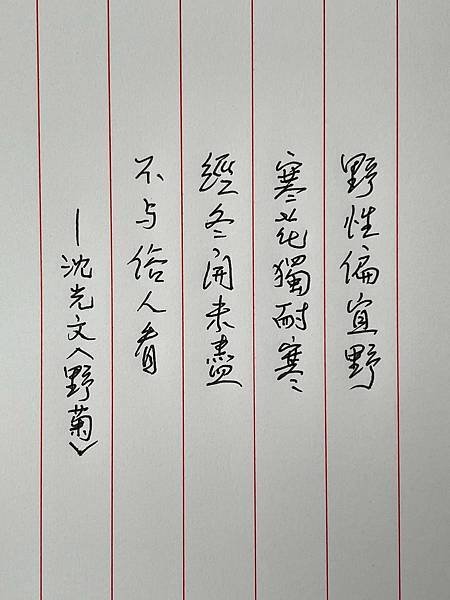 野性偏宜野
寒花獨耐寒
經冬開未盡
不与俗人看
—沈光文〈野菊〉